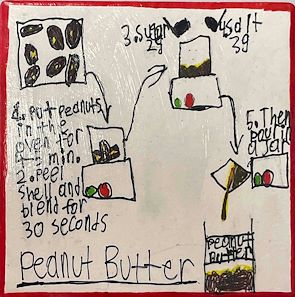 3. sugar
2g
salt
3g
1. put peanuts
in the
oven for
4-5 min.
2. peel
shell and
blend for
30 seconds
5. Then
pour in
a jar
Peanut
Butter
Peanut Butter